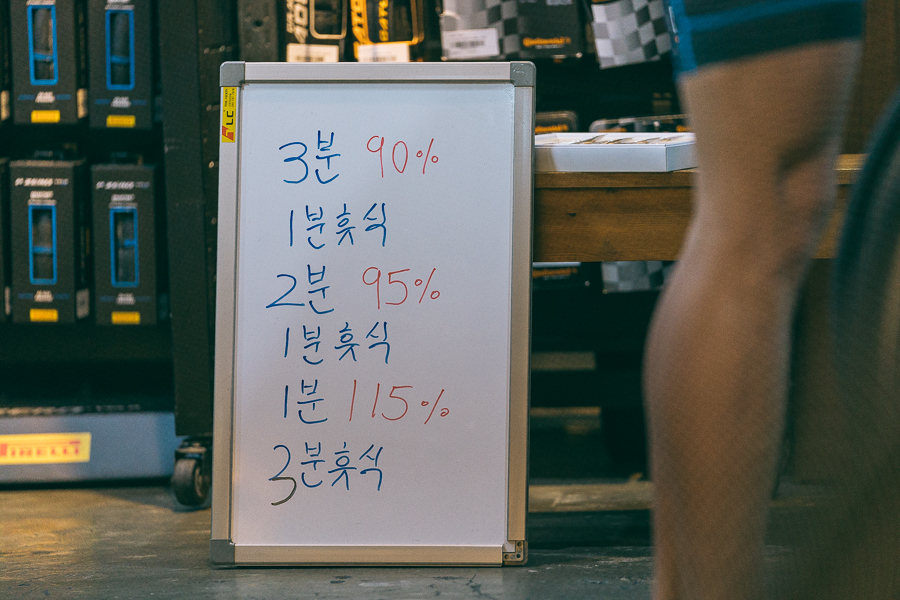 3분 90%
1분휴식
2분 95%
1분휴식
1분 115%
3분휴식
PIRELLI